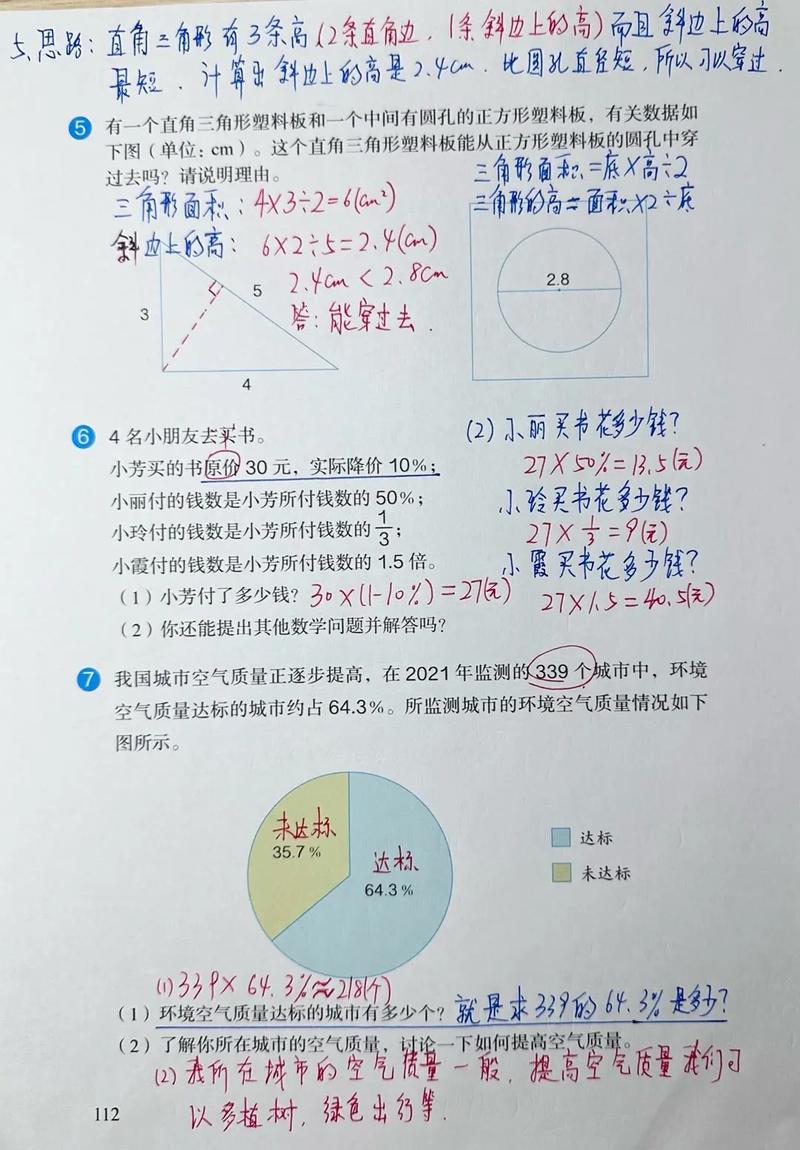 5、思路：直角三角形有3条高（2条直角边，1条斜边上的高）而且斜边上的高
最短．计算出斜边上的高是2.4cm．比圆孔直径短，所以可以穿过．
5 有一个直角三角形塑料板和一个中间有圆孔的正方形塑料板，有关数据如
下图（单位：cm）。这个直角三角形塑料板能从正方形塑料板的圆孔中穿
过去吗？请说明理由。
三角形面积＝底×高÷2
三角形面积：4×3÷2＝6(cm²)
三角形的高＝面积×2÷底
斜边上的高：6×2÷5＝2.4(cm)
2.4cm＜2.8cm
答：能穿过去．
3
5
4
2.8
6 4 名小朋友去买书。
小芳买的书原价 30 元，实际降价 10%；
小丽付的钱数是小芳所付钱数的 50%；
小玲付的钱数是小芳所付钱数的 1/3；
小霞付的钱数是小芳所付钱数的 1.5 倍。
（1）小芳付了多少钱？30×(1-10%)＝27(元)
（2）你还能提出其他数学问题并解答吗？
(2) 小丽买书花多少钱？
27×50%＝13.5(元)
小玲买书花多少钱？
27×1/3＝9(元)
小霞买书花多少钱？
27×1.5＝40.5(元)
7 我国城市空气质量正逐步提高，在 2021 年监测的 339 个城市中，环境
空气质量达标的城市约占 64.3%。所监测城市的环境空气质量情况如下
图所示。
未达标
35.7 %
达标
64.3 %
达标
未达标
(1) 339×64.3%≈218(个)
（1）环境空气质量达标的城市有多少个？就是求339的64.3%是多少？
（2）了解你所在城市的空气质量，讨论一下如何提高空气质量。
(2) 我所在城市的空气质量一般，提高空气质量我们可
以多植树，绿色出行等．
112